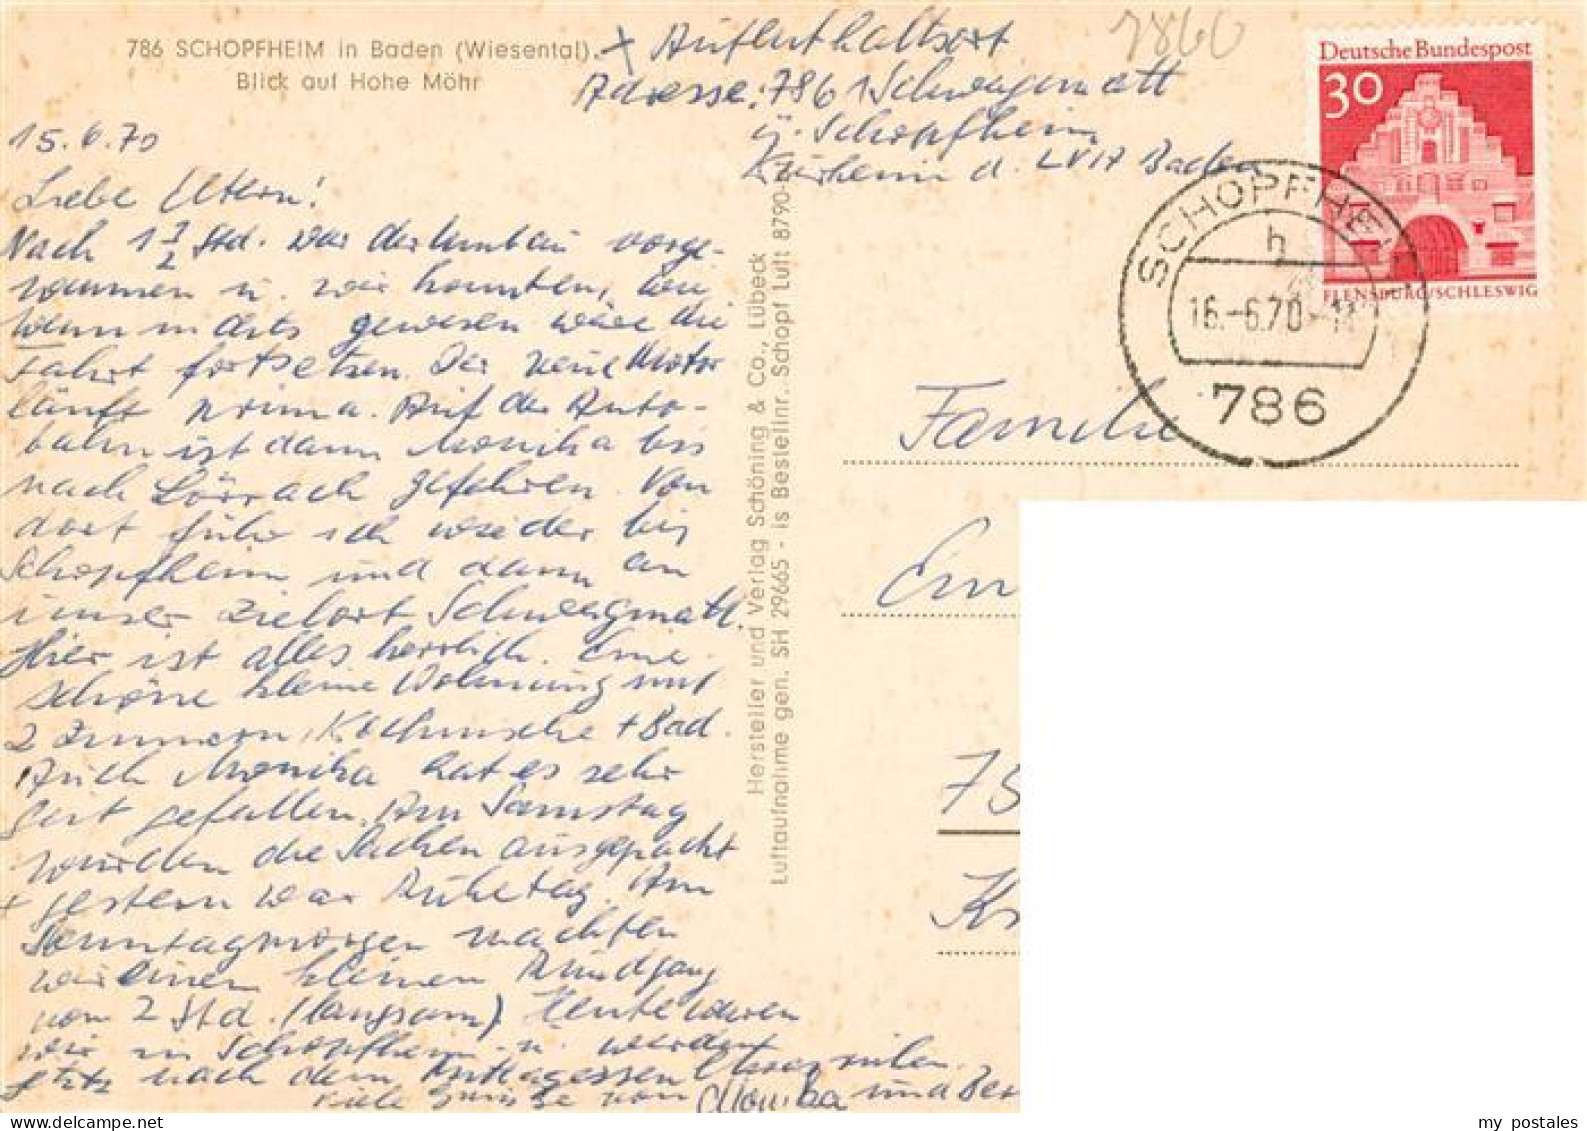 786 SCHOPFHEIM in Baden (Wiesental).
Blick auf Hohe Möhr
7860
x Aufenthaltsort
Adresse: 7861 Schweigmatt
ü. Schopfheim
Kurheim d. LVA Baden
Deutsche Bundespost
30
FLENSBURG/SCHLESWIG
SCHOPFHEI
h
16.-6.70-11
786
15.6.70
Liebe Eltern!
Nach 1 1/2 Std. war der Umbau vorge-
nommen u. wir konnten, wie
wenn nichts gewesen wäre die
Fahrt fortsetzen. Der neue Motor
läuft prima. Auf der Auto-
bahn ist dann Monika bis
nach Lörrach gefahren. Von
dort fuhr ich weider bis
Schopfheim und dann an
unser Zielort Schweigmatt.
Hier ist alles herrlich. Eine
schöne kleine Wohnung mit
2 Zimmern, Kochnische + Bad.
Auch Monika hat es sehr
gut gefallen. Am Samstag
wurden die Sachen ausgepackt
+ gestern war Ruhetag. Am
Sonntagmorgen machten
wir einen kleinen Rundgang
von 2 Std. (langsam) Heute waren
wir in Schopfheim u. werden
jetzt nach dem Mittagessen
Viele Grüsse von Monika und Ber
Hersteller und Verlag Schöning & Co., Lübeck
Luftaufnahme gen. SH 29665 - is Bestellnr. Schopf Luft 8790
Familie
Em
75
Kr
my postales